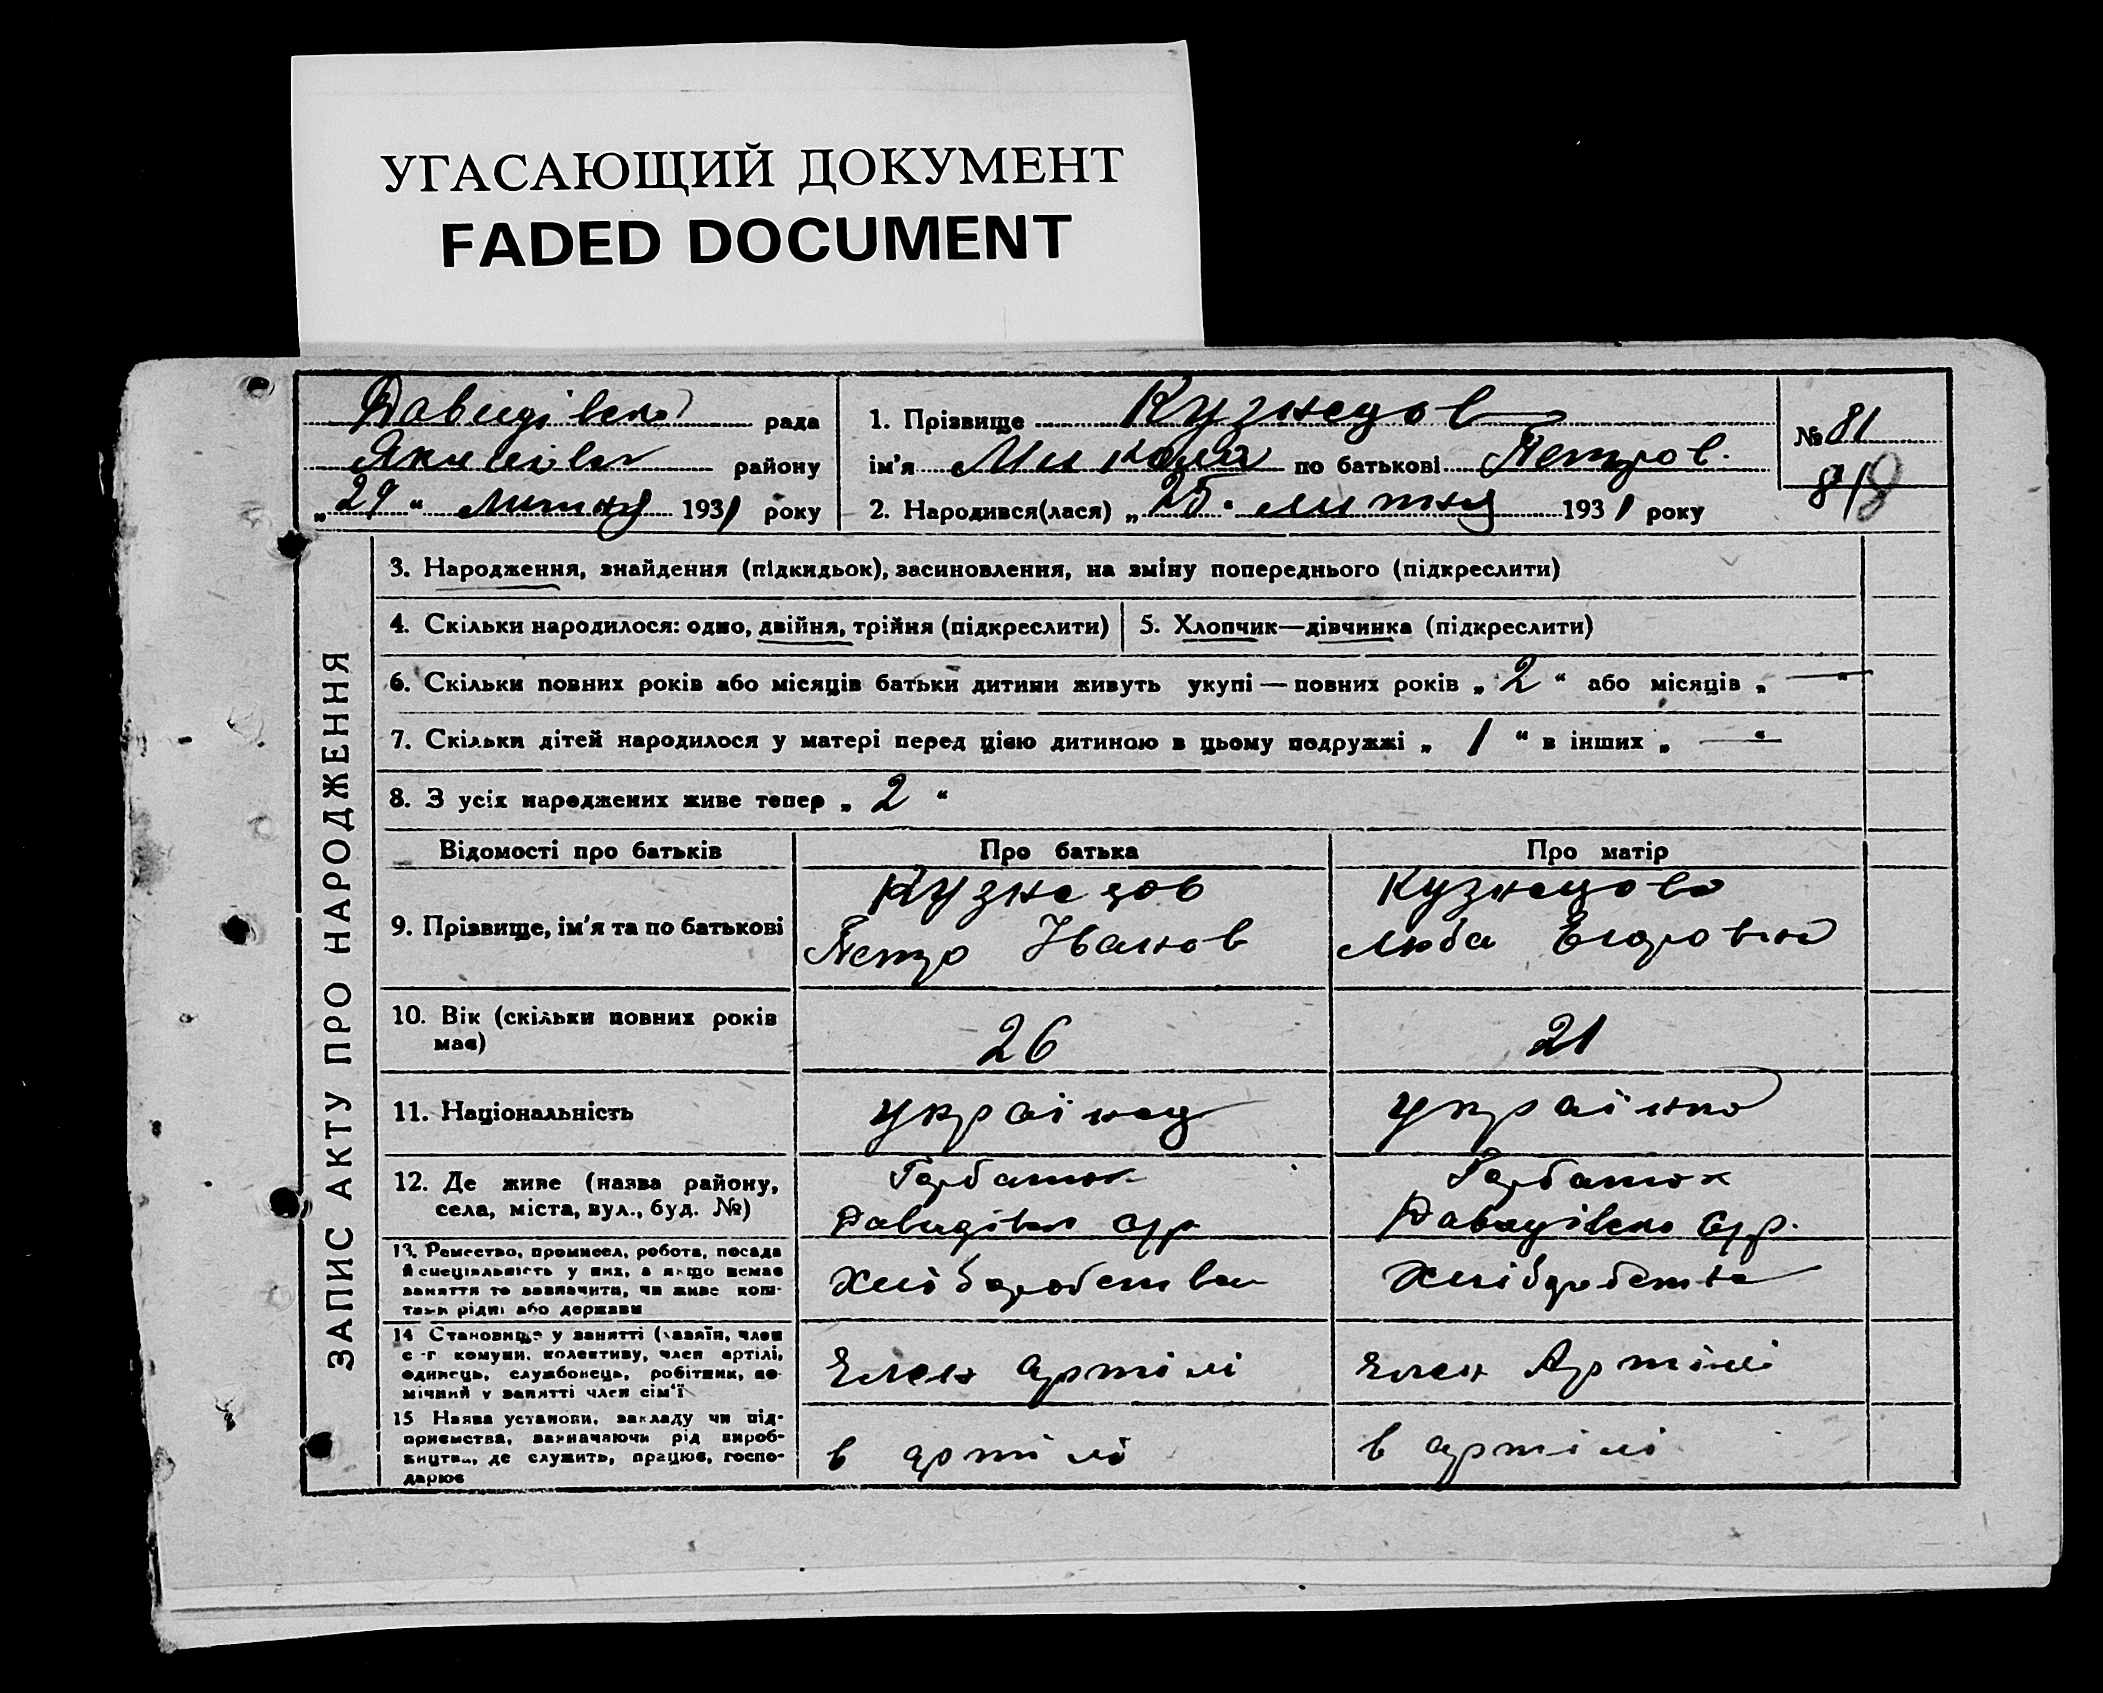 УГАСАЮЩИЙ ДОКУМЕНТ
FADED DOCUMENT
Давидівска рада
району
„29“ Липня 1931 року
1. Прізвище Кузнецов
ім'я Микола по батькові Петров.
2. Народився(лася) „25“ липня 1931 року
№ 81
ЗАПИС АКТУ ПРО НАРОДЖЕННЯ
3. Народження, знайдення (підкидьок), засиновлення, на зміну попереднього (підкреслити)
4. Скільки народилося: одно, двійня, трійня (підкреслити)
5. Хлопчик—дівчинка (підкреслити)
6. Скільки повних років або місяців батьки дитини живуть укупі — повних років „2“ або місяців „—“
7. Скільки дітей народилося у матері перед цією дитиною в цьому подружжі „1“ в інших „—“
8. З усіх народжених живе тепер „2“
Відомості про батьків
Про батька
Про матір
9. Прізвище, ім'я та по батькові
Кузнецов
Петро Іванов
Кузнецова
Люба Егоровна
10. Вік (скільки повних років
має)
26
21
11. Національність
українец
українка
12. Де живе (назва району,
села, міста, вул., буд. №)
Горбатюк
Давидівска с/р
Горбатюк
Давидівска с/р.
13. Ремество, промисел, робота, посада
й спеціяльність у них, а якщо немає
заняття то зазначити, чи живе кош-
тами рідні або держави
Хліборобства
Хліборобства
14 Становище у занятті (хазяїн, член
с-г комуни, колективу, член артілі,
одинець, службовець, робітник, по-
мічний у занятті член сім'ї
Член артілі
Член Артілі
15 Назва установи, закладу чи під-
приємства, зазначаючи рід вироб-
ництва, де служить, працює, госпо-
дарює
в артілі
в артілі